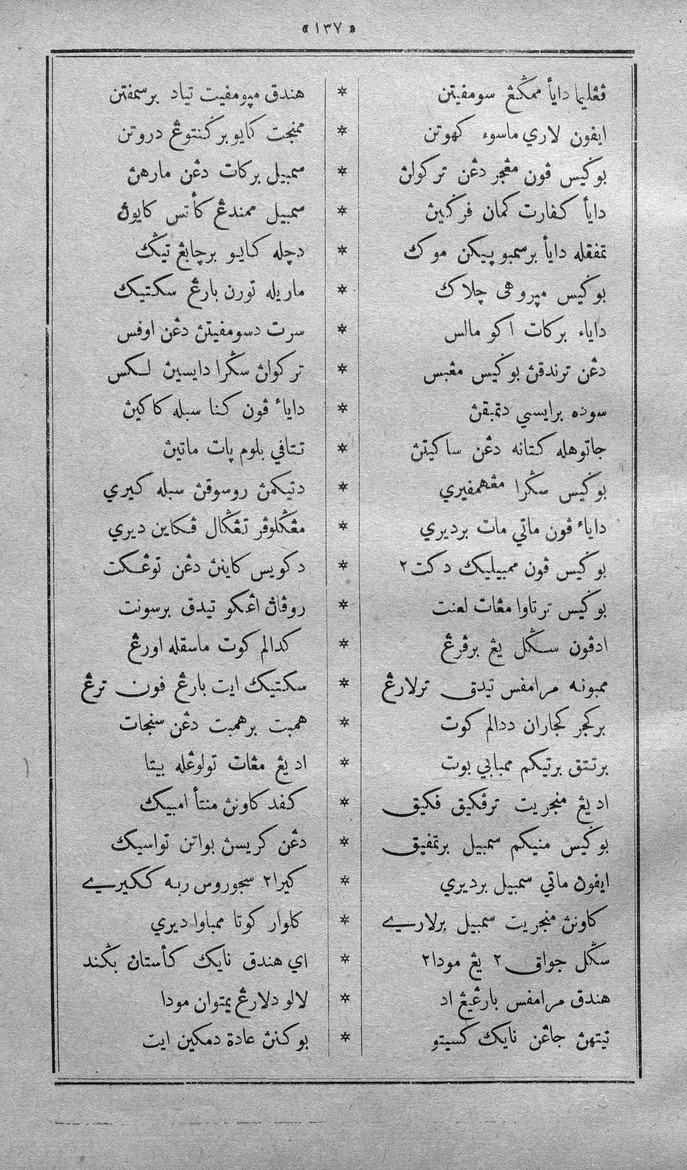 « ١٣٧ »
ڤڠليما دايأ ممڬڠ سومڤيتن * هندق مڽومڤيت تياد برسمڤتن
ايڤون لاري ماسوء كهوتن * ممنجت كايو بركنتوڠ دروتن
بوڬيس ڤون مڠجر دڠن تركولن * سمبيل بركات دڠن مارهن
دايأ كڤارت كمان ڤرڬين * سمبيل ممندڠ كأتس كايون
تمڤقله دايأ برسمبوڽيكن موك * دچله كايو برچابڠ تيڬ
بوڬيس مڽروهى چلاك * ماريله تورن بارڠ سكتيك
داياء بركات اكو مالس * سرت دسومڤيتن دڠن اوڤس
دڠن ترندقن بوڬيس مڠبس * تركولن سڬرا دايسين لكس
سوده برايسي دتمبقن * داياء ڤون كنا سبله كاكين
جاتوهله كتانه دڠن ساكيتن * تتاڤي بلوم ڽات ماتين
بوڬيس سڬرا مڠهمڤيري * دتيكمن روسوقن سبله كيري
داياء ڤون ماتي مات برديري * مڠڬلوڤر تڠڬال ڤكاين ديري
بوڬيس ڤون ممبيليك دكت٢ * دكويس كاينن دڠن توڠكت
بوڬيس ترتاوا مڠات لعنت * روڤان اڠكو تيدق برسونت
ادڤون سڬل يڠ برڤرڠ * كدالم كوت ماسقله اورڠ
ممبونه مرامڤس تيدق ترلارڠ * سكتيك ايت بارڠ ڤون ترڠ
بركجر كجاران ددالم كوت * همبت برهمبت دڠن سنجات
برتتق برتيكم ممبابي بوت * اديڠ مڠات تولوڠله بيتا
اديڠ منجريت ترڤكيق ڤكيق * كڤد كاونن منتأ امبيك
بوڬيس منيكم سمبيل برتمڤيق * دڠن كريسن بواتن تواسيك
ايڤون ماتي سمبيل برديري * كيرا٢ سجوروس ربه ككيري
كاونن منجريت سمبيل برلاري * كلوار كوتا ممباوا ديري
سڬل جواق٢ يڠ مودا٢ * اي هندق نايك كأستان بڬند
هندق مرامڤس بارڠيڠ اد * لالو دلارڠ يمتوان مودا
تيتهن جاڠن نايك كسيتو * بوكنن عادة دمكين ايت